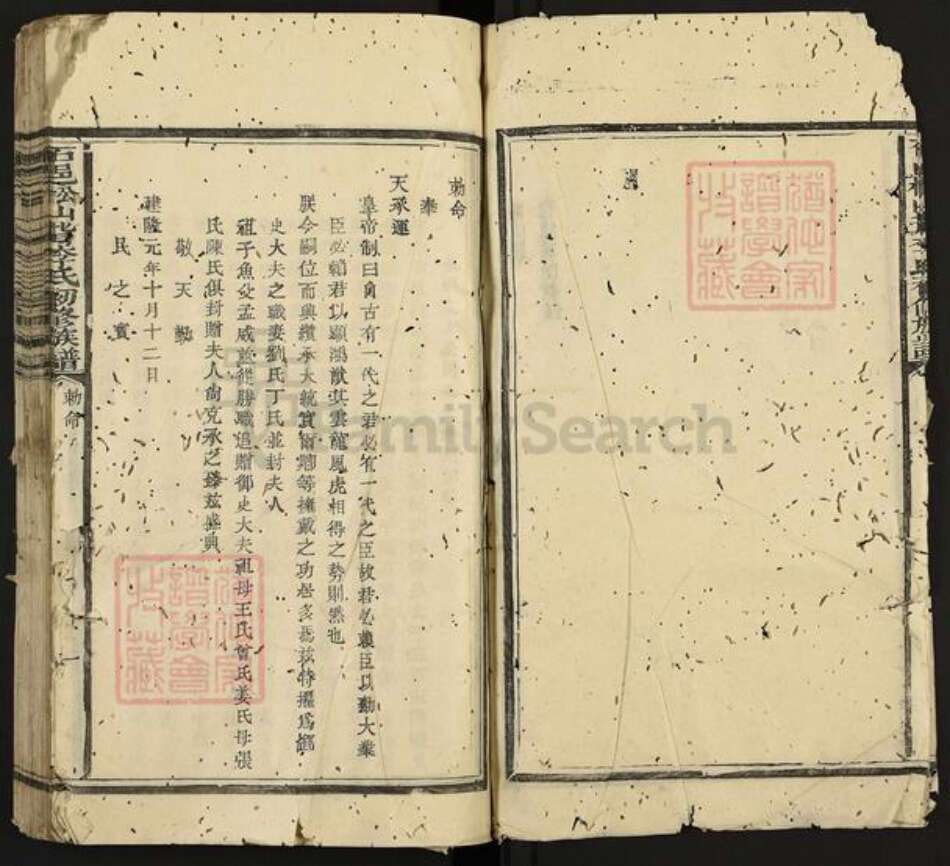 勅命
奉
天承運
皇帝制曰自古有一代之君必有一代之臣故君必賴臣以勷大業
臣必賴君以顯鴻猷其雲龍風虎相得之勢則然也
朕今嗣位而興纘承大統實爾等擁戴之功居多焉茲特擢為
史大夫之職妻劉氏丁氏並封夫人
祖子魚父孟威並從勝職追贈御史大夫祖母王氏曾氏姜氏母張
氏陳氏俱封贈夫人尚克承之茲盛典
敬天
建隆元年十月十二日
民之寳
石邑松山背李氏初修族譜
勅命
譜學會
收藏
FamilySearch